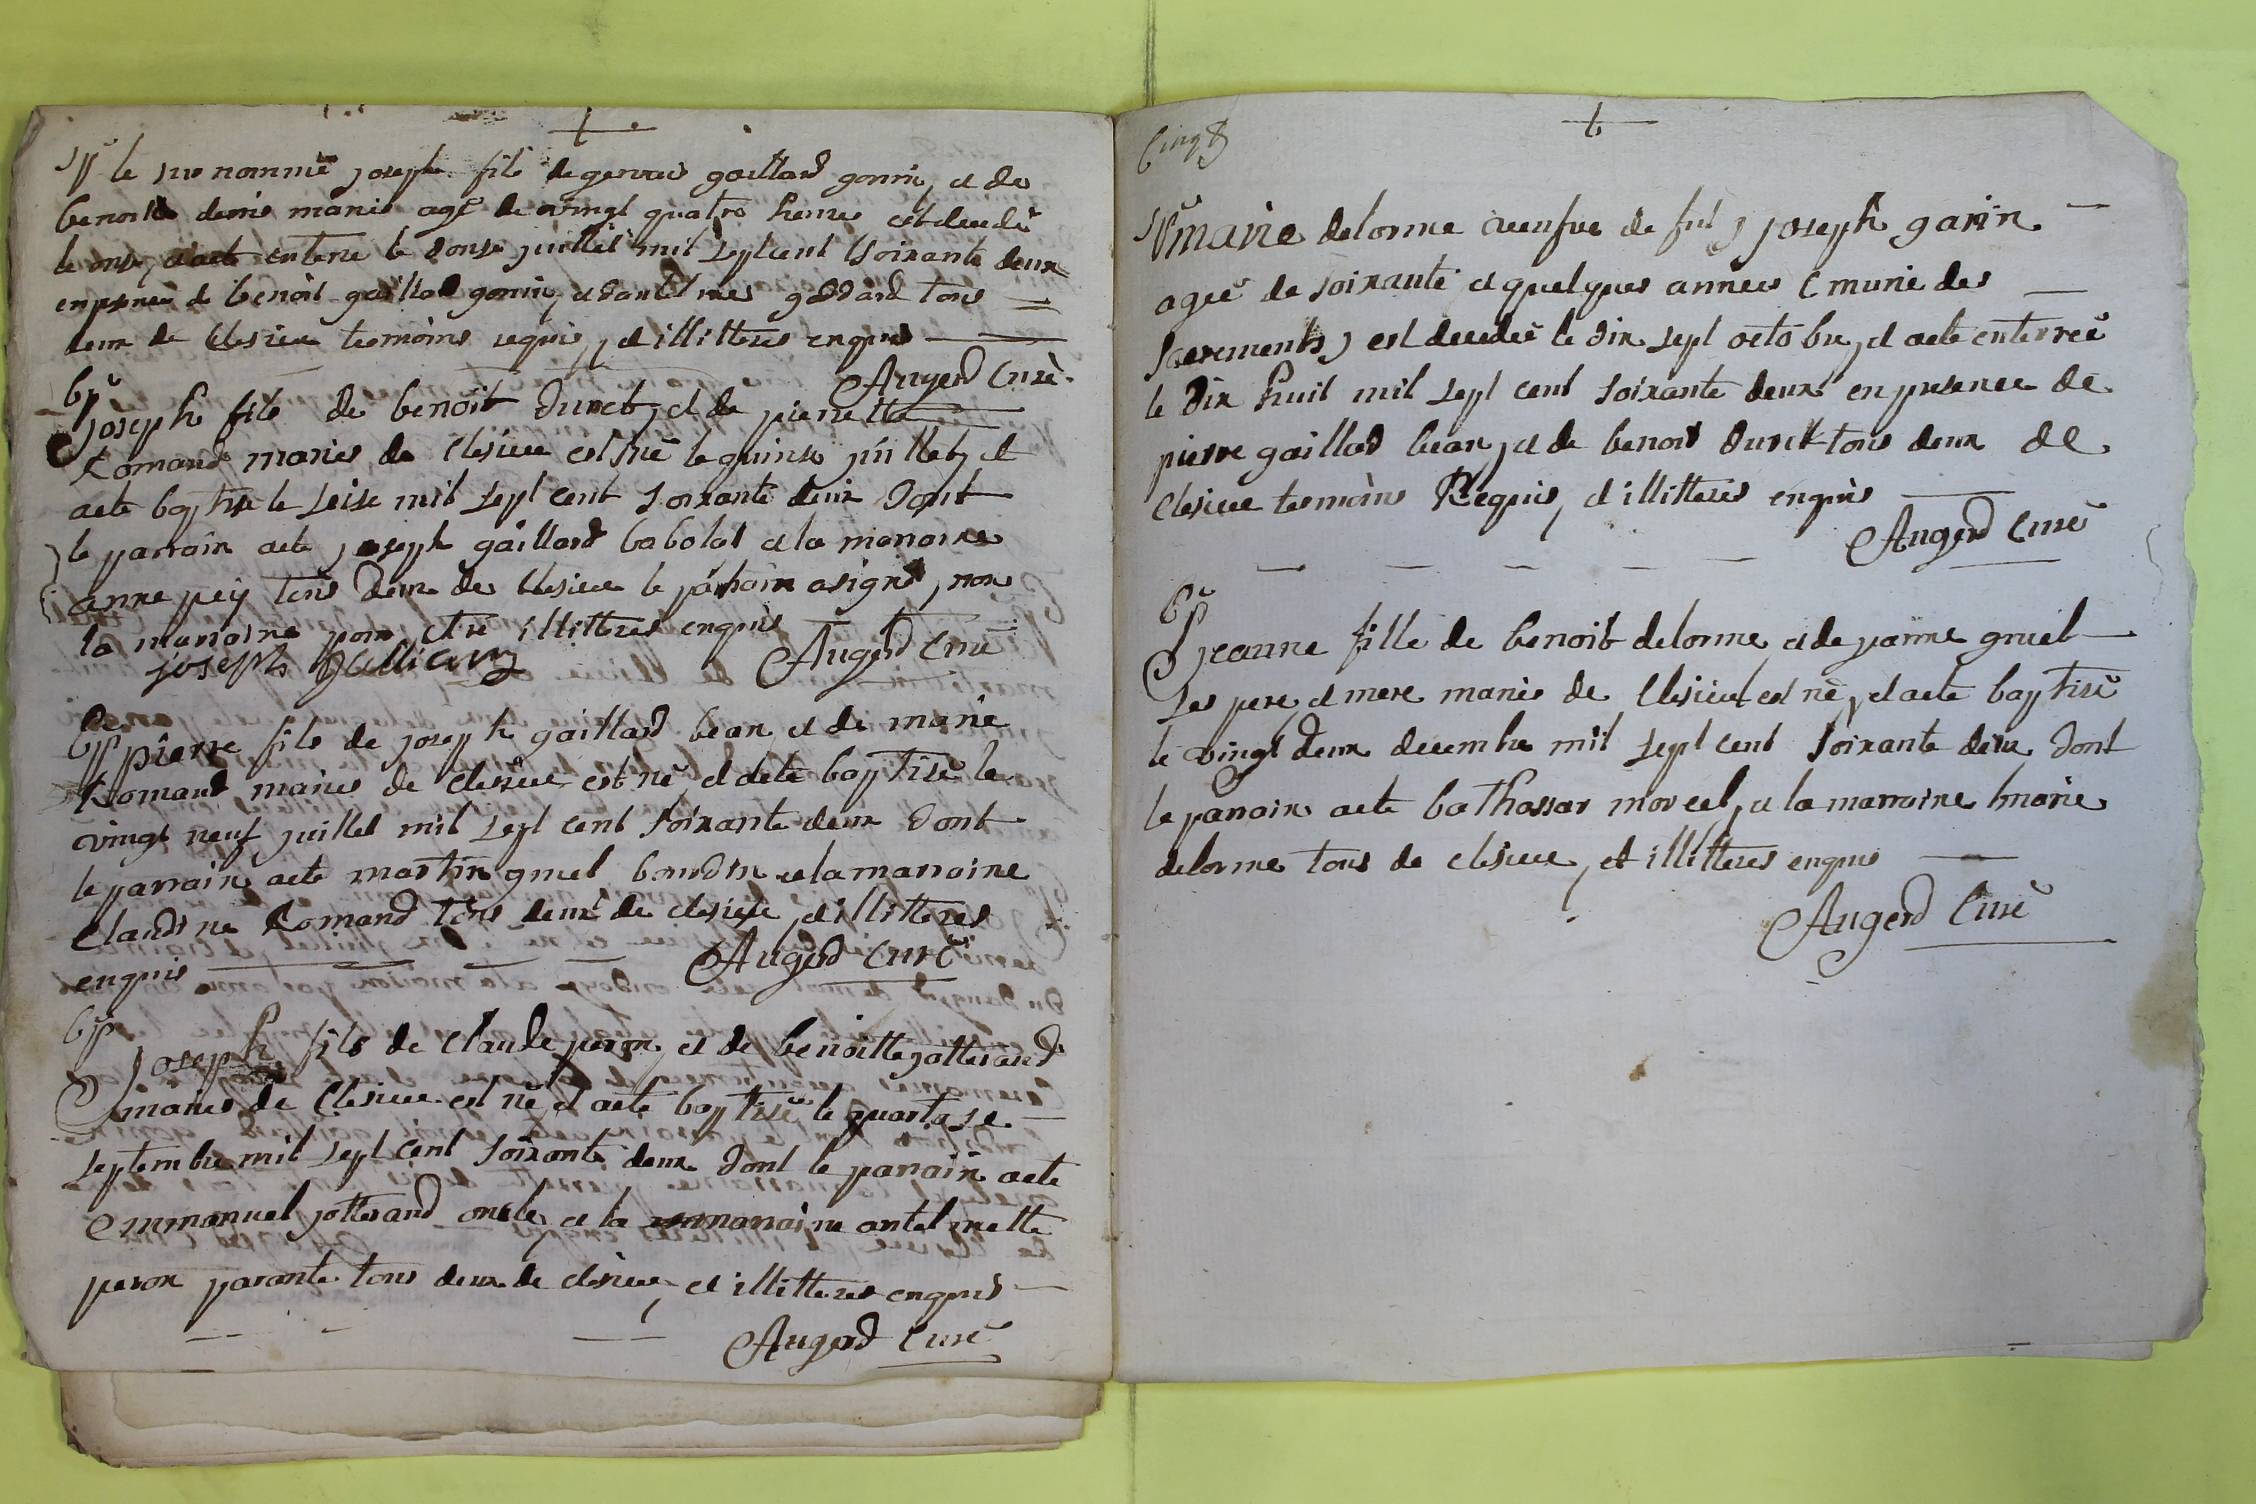 le susnommé joseph fils de gervais gaillard gonin, et de
benoite denis mariés agé de vingt quatre heures est decedé
le onse, et aeté enterré le douse juillet mil sept cent soixante deux
en presence de benoit gaillard gonin, et danthelmes goddard tous
deux de Clesieu temoins requis, et illitteres enquis
Augerd Curé
bp
joseph fils de benoit Duret, et de pierrette
Romand mariés de Clesieu est né le quinse juillet, et
aeté baptisé le seise mil sept cent soixante deux dont
le parrain aeté joseph gaillard babolat et la marraine
anne pey tous deux de Clesieu le parrain a signé, non
la marraine pour etre illitteres enquis
joseph Augerd Curé
bp pierre fils de joseph gaillard bean et de marie
Romand mariés de Clesieu est né, et aeté baptisé le
vingt neuf juillet mil sept cent soixante deux dont
le parrain aeté martin gruel et la marraine
Claudine Romand tous deux de clesieu, et illitteres
enquis Augerd Curé
bp
joseph fils de Claude peron, et de benoitte jotterand
mariés de Clesieu est né et aeté baptisé le quatorse
septembre mil sept cent soixante deux dont le parrain aeté
emmanuel jotterand oncle, et la marraine antelmette
peron parante tous deux de clesieu, et illitteres enquis
Augerd Curé
Cinq
marie delorme veufve de joseph garin
agée de soixante et quelques années (munie des
sacrements) est decedée le dix sept octobre, et aeté enterrée
le dix huit mil sept cent soixante deux en presence de
pierre gaillard bean, et de benoit Duret tous deux de
Clesieu temoins Requis, et illitteres enquis
Augerd Curé
bp
jeanne fille de benoit delorme, et de jeanne gruel
ses pere, et mere mariés de Clesieu est né, et aeté baptisé
le vingt deux decembre mil sept cent soixante deux dont
le parrain aeté bathassar morcel, et la marraine marie
delorme tous de clesieu, et illitteres enquis
Augerd Curé